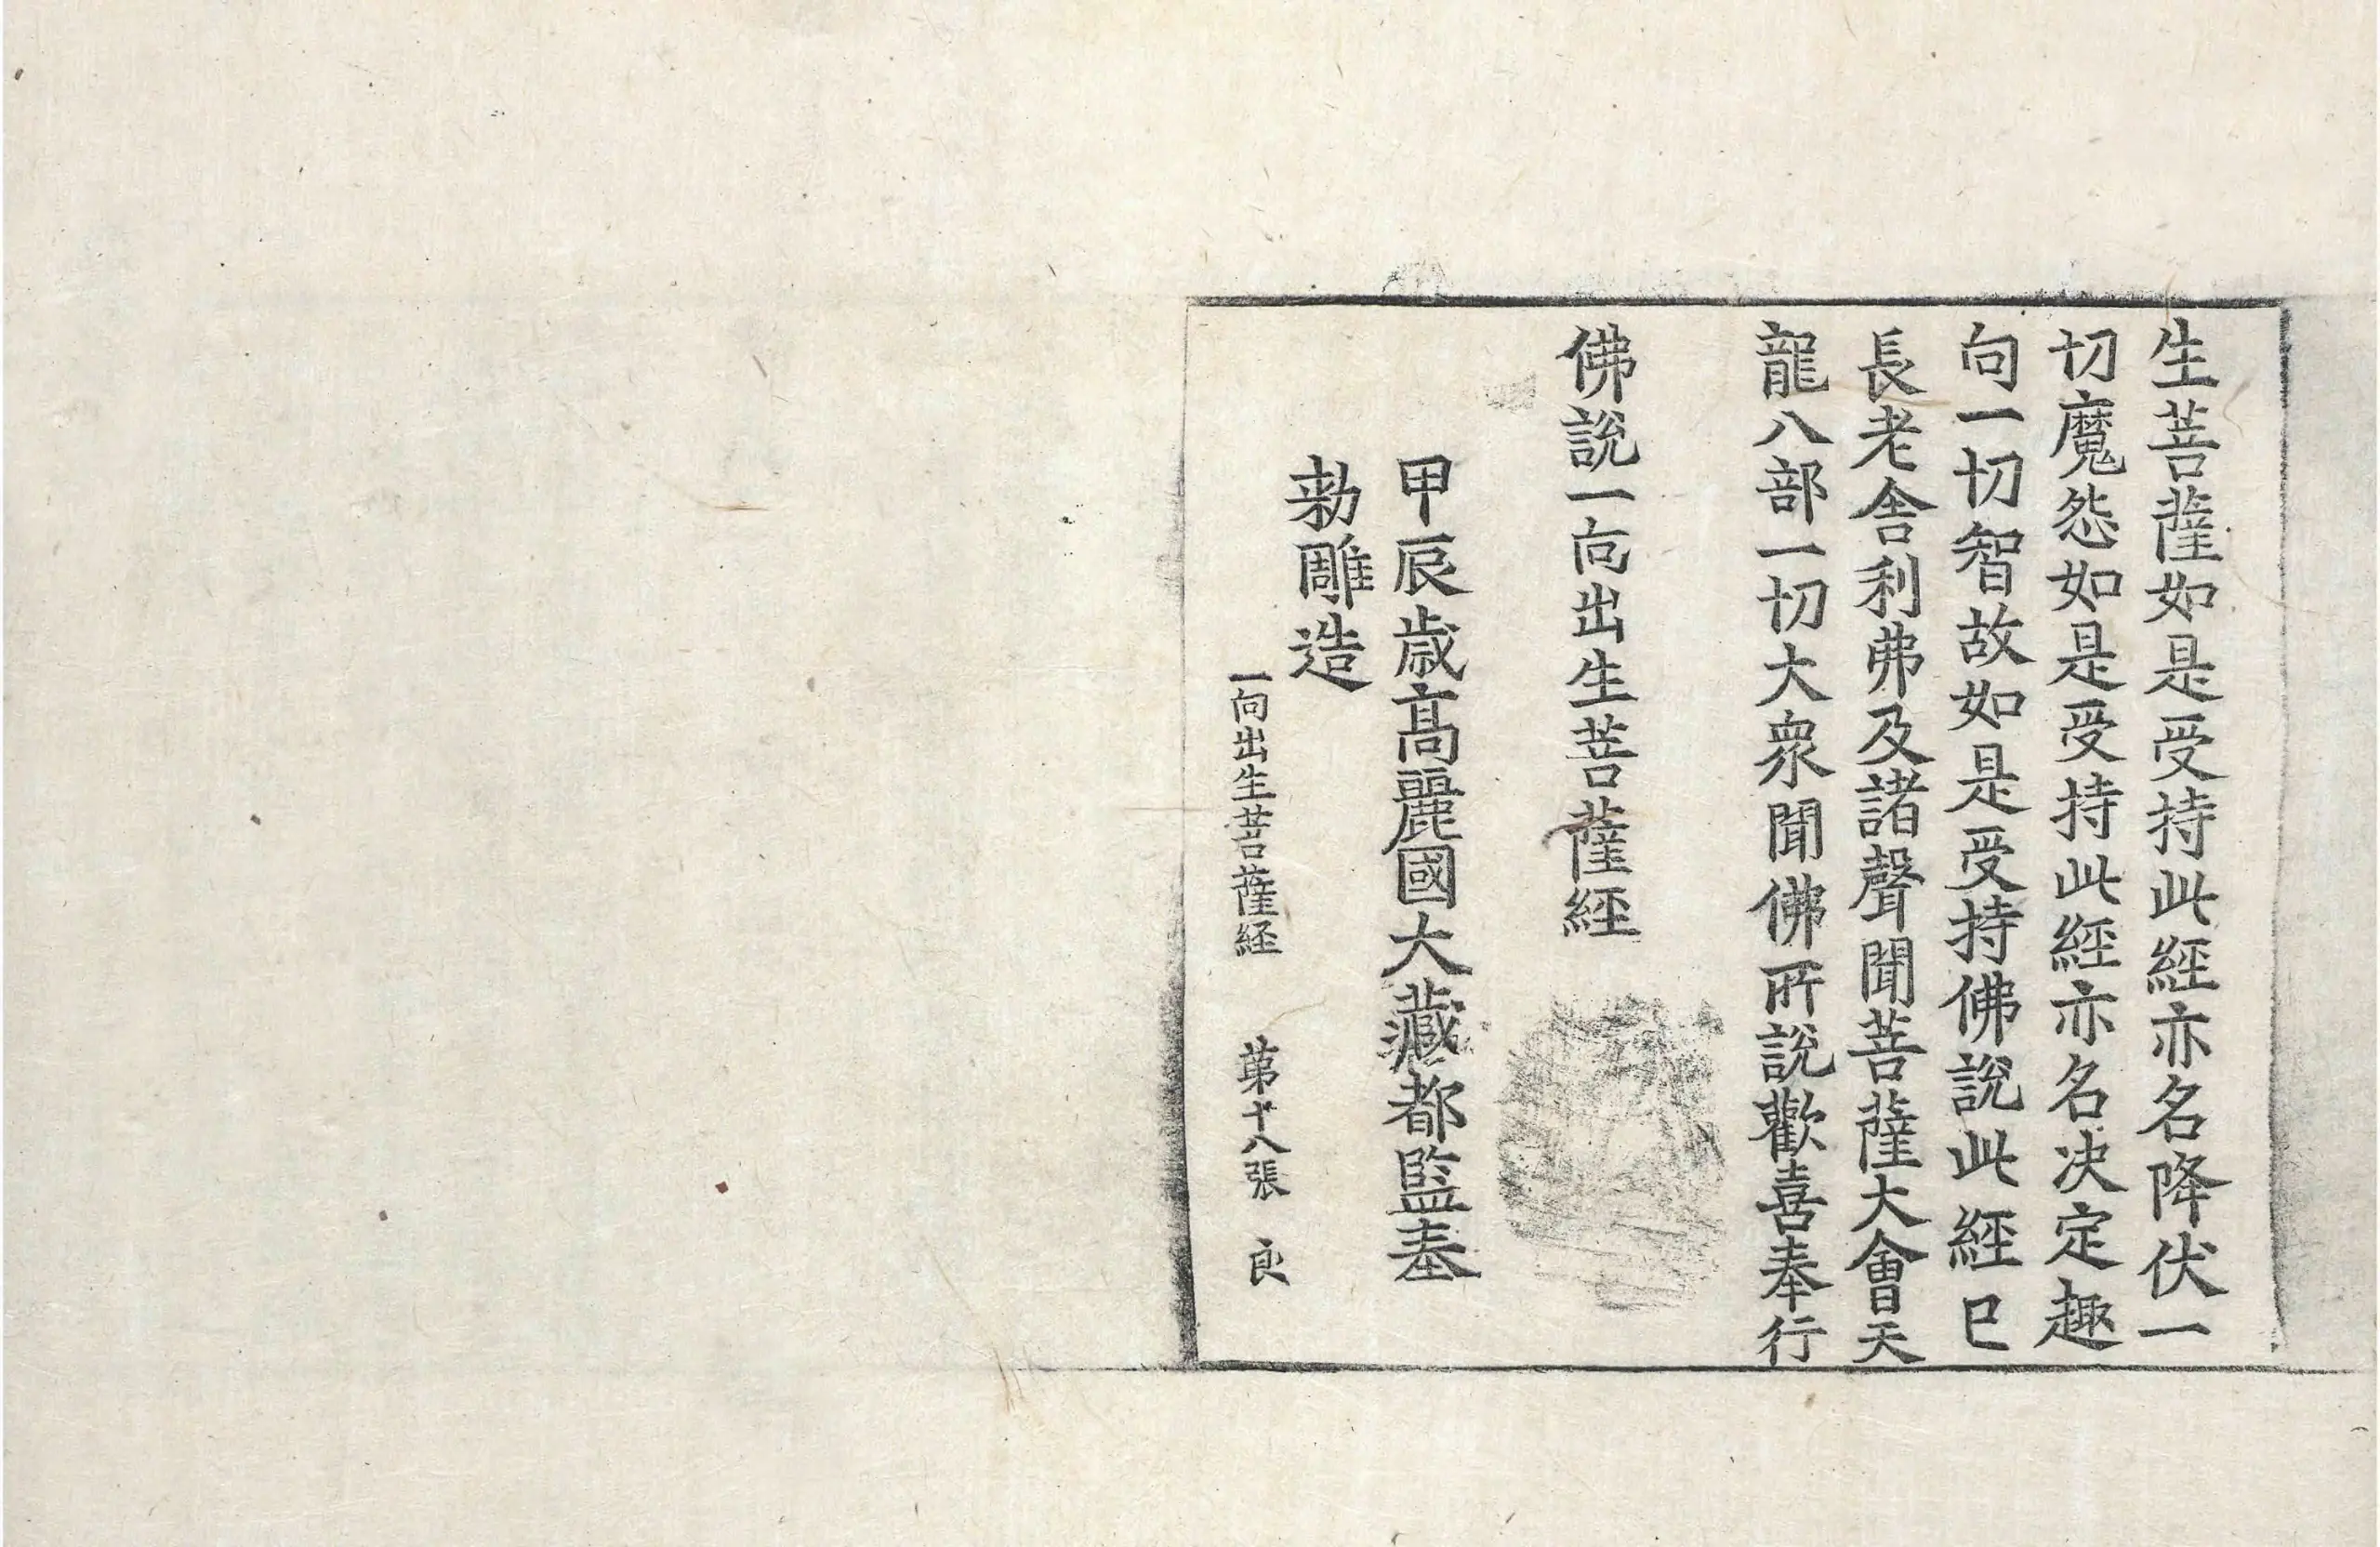 生菩薩如是受持此經亦名降伏一
切魔怨如是受持此經亦名决定趣
向一切智故如是受持佛說此經已
長老舍利弗及諸聲聞菩薩大會天
龍八部一切大衆聞佛所說歡喜奉行
佛說一向出生菩薩經
甲辰歲高麗國大藏都監奉
勅雕造
一向出生菩薩経 第十八張 良